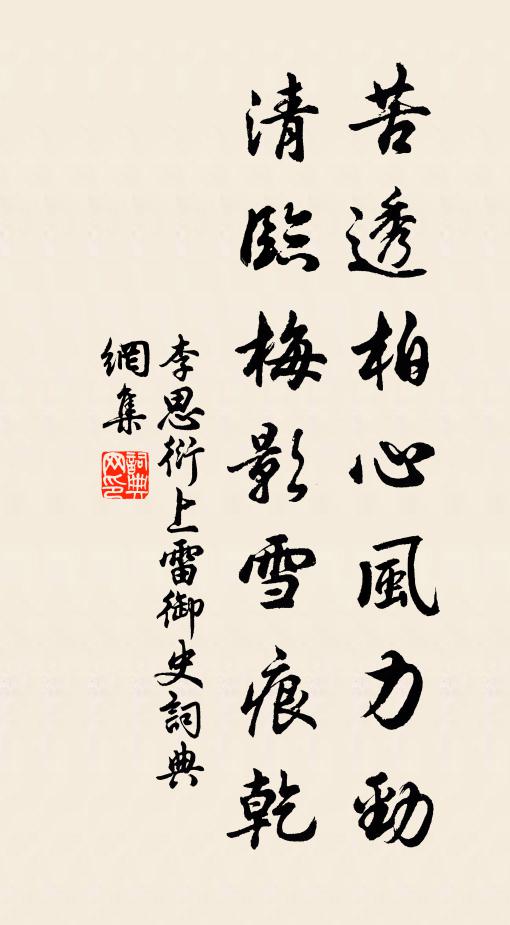 苦透柏心風力勁
清臨梅影雪痕乾
李思衍上雷御史詞典
網集
詞典
网印